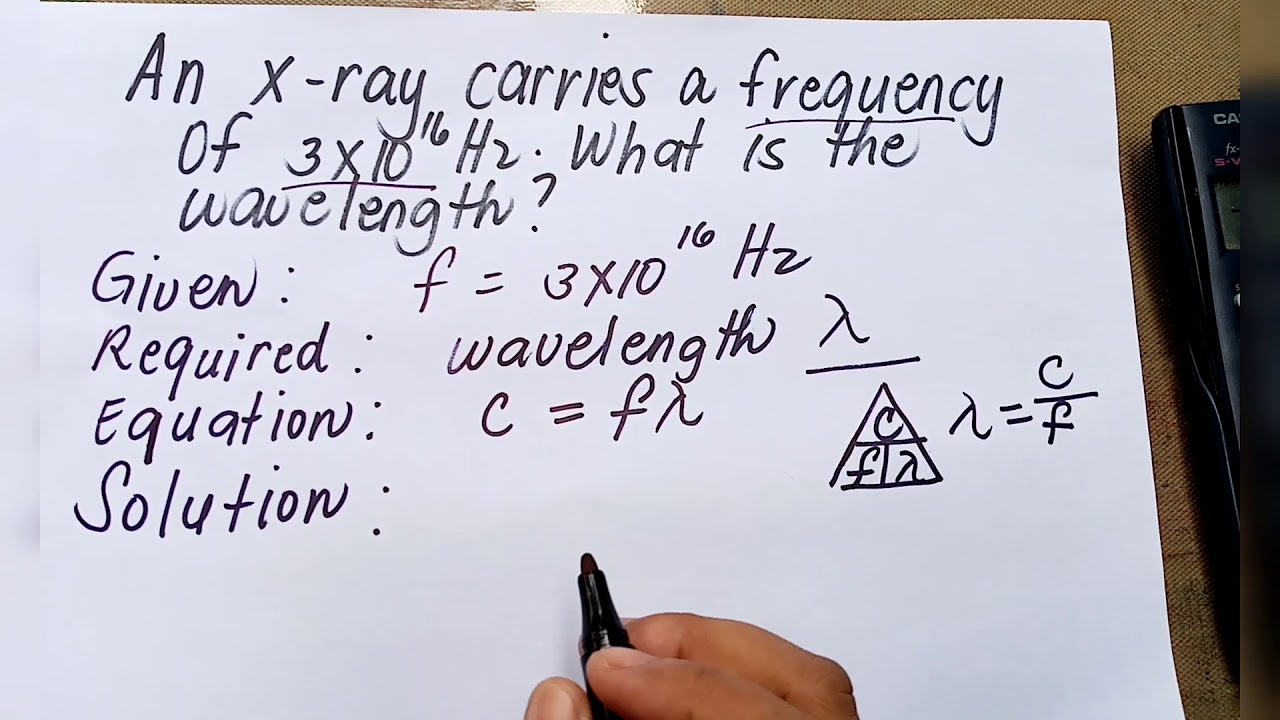 An x-ray carries a frequency
Of 3x10¹⁶ Hz. What is the
wavelength?
Given: f = 3x10¹⁶ Hz
Required: wavelength λ
Equation: c = fλ
c
f λ
λ = c/f
Solution: